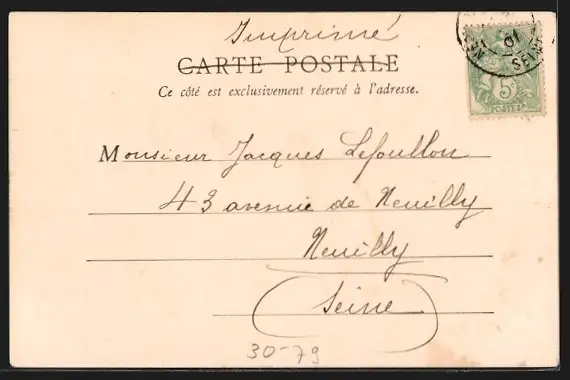 Imprimé
CARTE POSTALE
Ce côté est exclusivement réservé à l'adresse.
Monsieur Jacques Lefoullon
43 avenue de Neuilly
Neuilly
(Seine)
30-79
01
SEINE
5c
POSTES